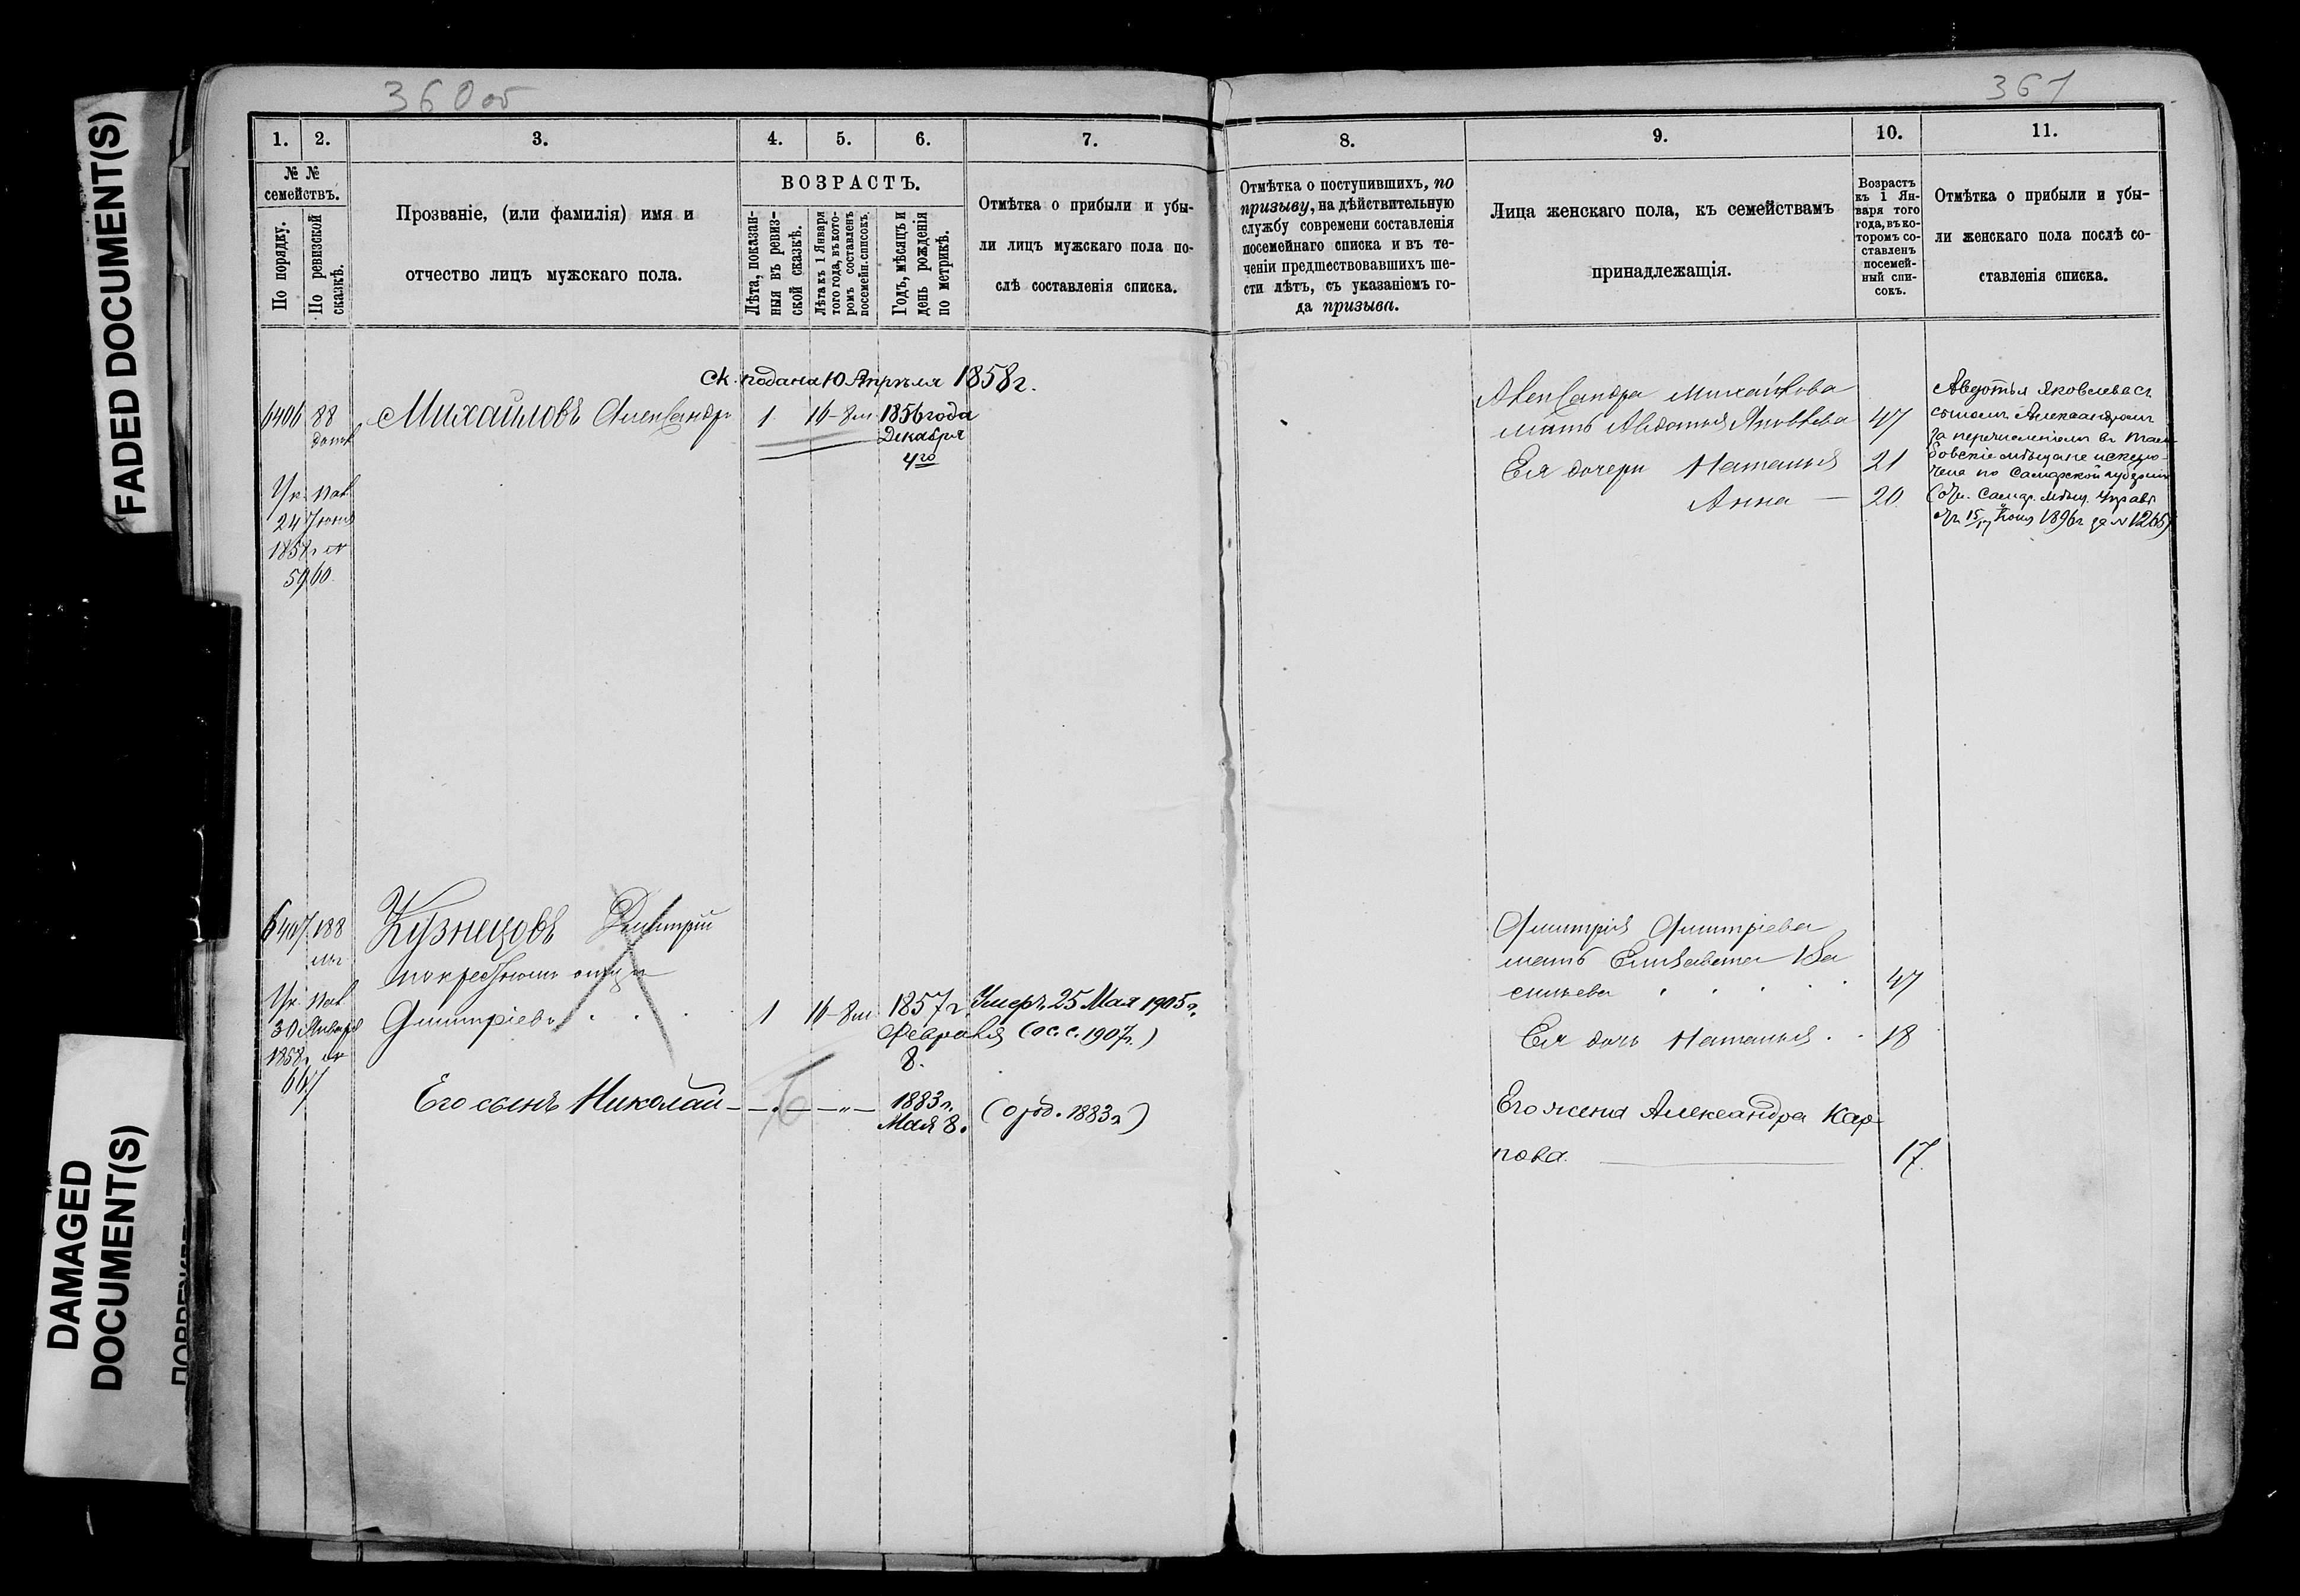 FADED DOCUMENT(S)
DAMAGED
DOCUMENT(S)
360 об
1.
2.
3.
4.
5.
6.
7.
№ №
семействъ.
По порядку.
По ревизской
сказкѣ.
Прозваніе, (или фамилія) имя и
отчество лицъ мужскаго пола.
ВОЗРАСТЪ.
Лѣта, показан-
ныя въ ревиз-
ской сказкѣ.
Лѣта къ 1 Января
того года, въ кото-
ромъ составленъ
посемейн. списокъ.
Годъ, мѣсяцъ и
день рожденія
по метрикѣ.
Отмѣтка о прибыли и убы-
ли лицъ мужскаго пола по-
слѣ составленія списка.
ск. подана 10 Апрѣля 1858 г.
6406 88 Михайловъ Александръ 1 16-8м 1856 года
Декабря
4го
Ук. Пал.
24 Іюня
1858 г. №
5960.
6407 188 Кузнецовъ Дмитрій
по крестному отцу
Ук. Пал.
Дмитріевъ 1 16-8м 1857 г. Умеръ 25 Мая 1905 г.
30 Января Февраля (ос. с. 1907 г.)
1858 г. № 8.
667
Его сынъ Николай 1883 г.
Мая 8. (о род. 1883 г.)
361
8.
9.
10.
11.
Отмѣтка о поступившихъ, по
призыву, на дѣйствительную
службу современи составленія
посемейнаго списка и въ те-
ченіи предшествовавшихъ ше-
сти лѣтъ, съ указаніемъ го-
да призыва.
Лица женскаго пола, къ семействамъ
принадлежащія.
Возрастъ
къ 1 Ян-
варя того
года, въ ко-
торомъ со-
ставленъ
посемей-
ный спи-
сокъ.
Отмѣтка о прибыли и убы-
ли женскаго пола послѣ со-
ставленія списка.
Александра Михайлова
мать Авдотья Яковлева 47
Ея дочери Наталья 21
Анна — 20
Авдотья Яковлева съ
сыномъ Александромъ
за перечисленіемъ въ Там-
бовскіе мѣщане исклю-
чена по Самарской губерніи
(от. Самар. мѣщ. Управ.
отъ 15/17 Іюня 1896 г за № 1265)
Дмитрія Дмитріева
мать Елизавета Ва
сильева 47
Ея дочь Наталья 18
Его жена Александра Кар-
пова. 17.